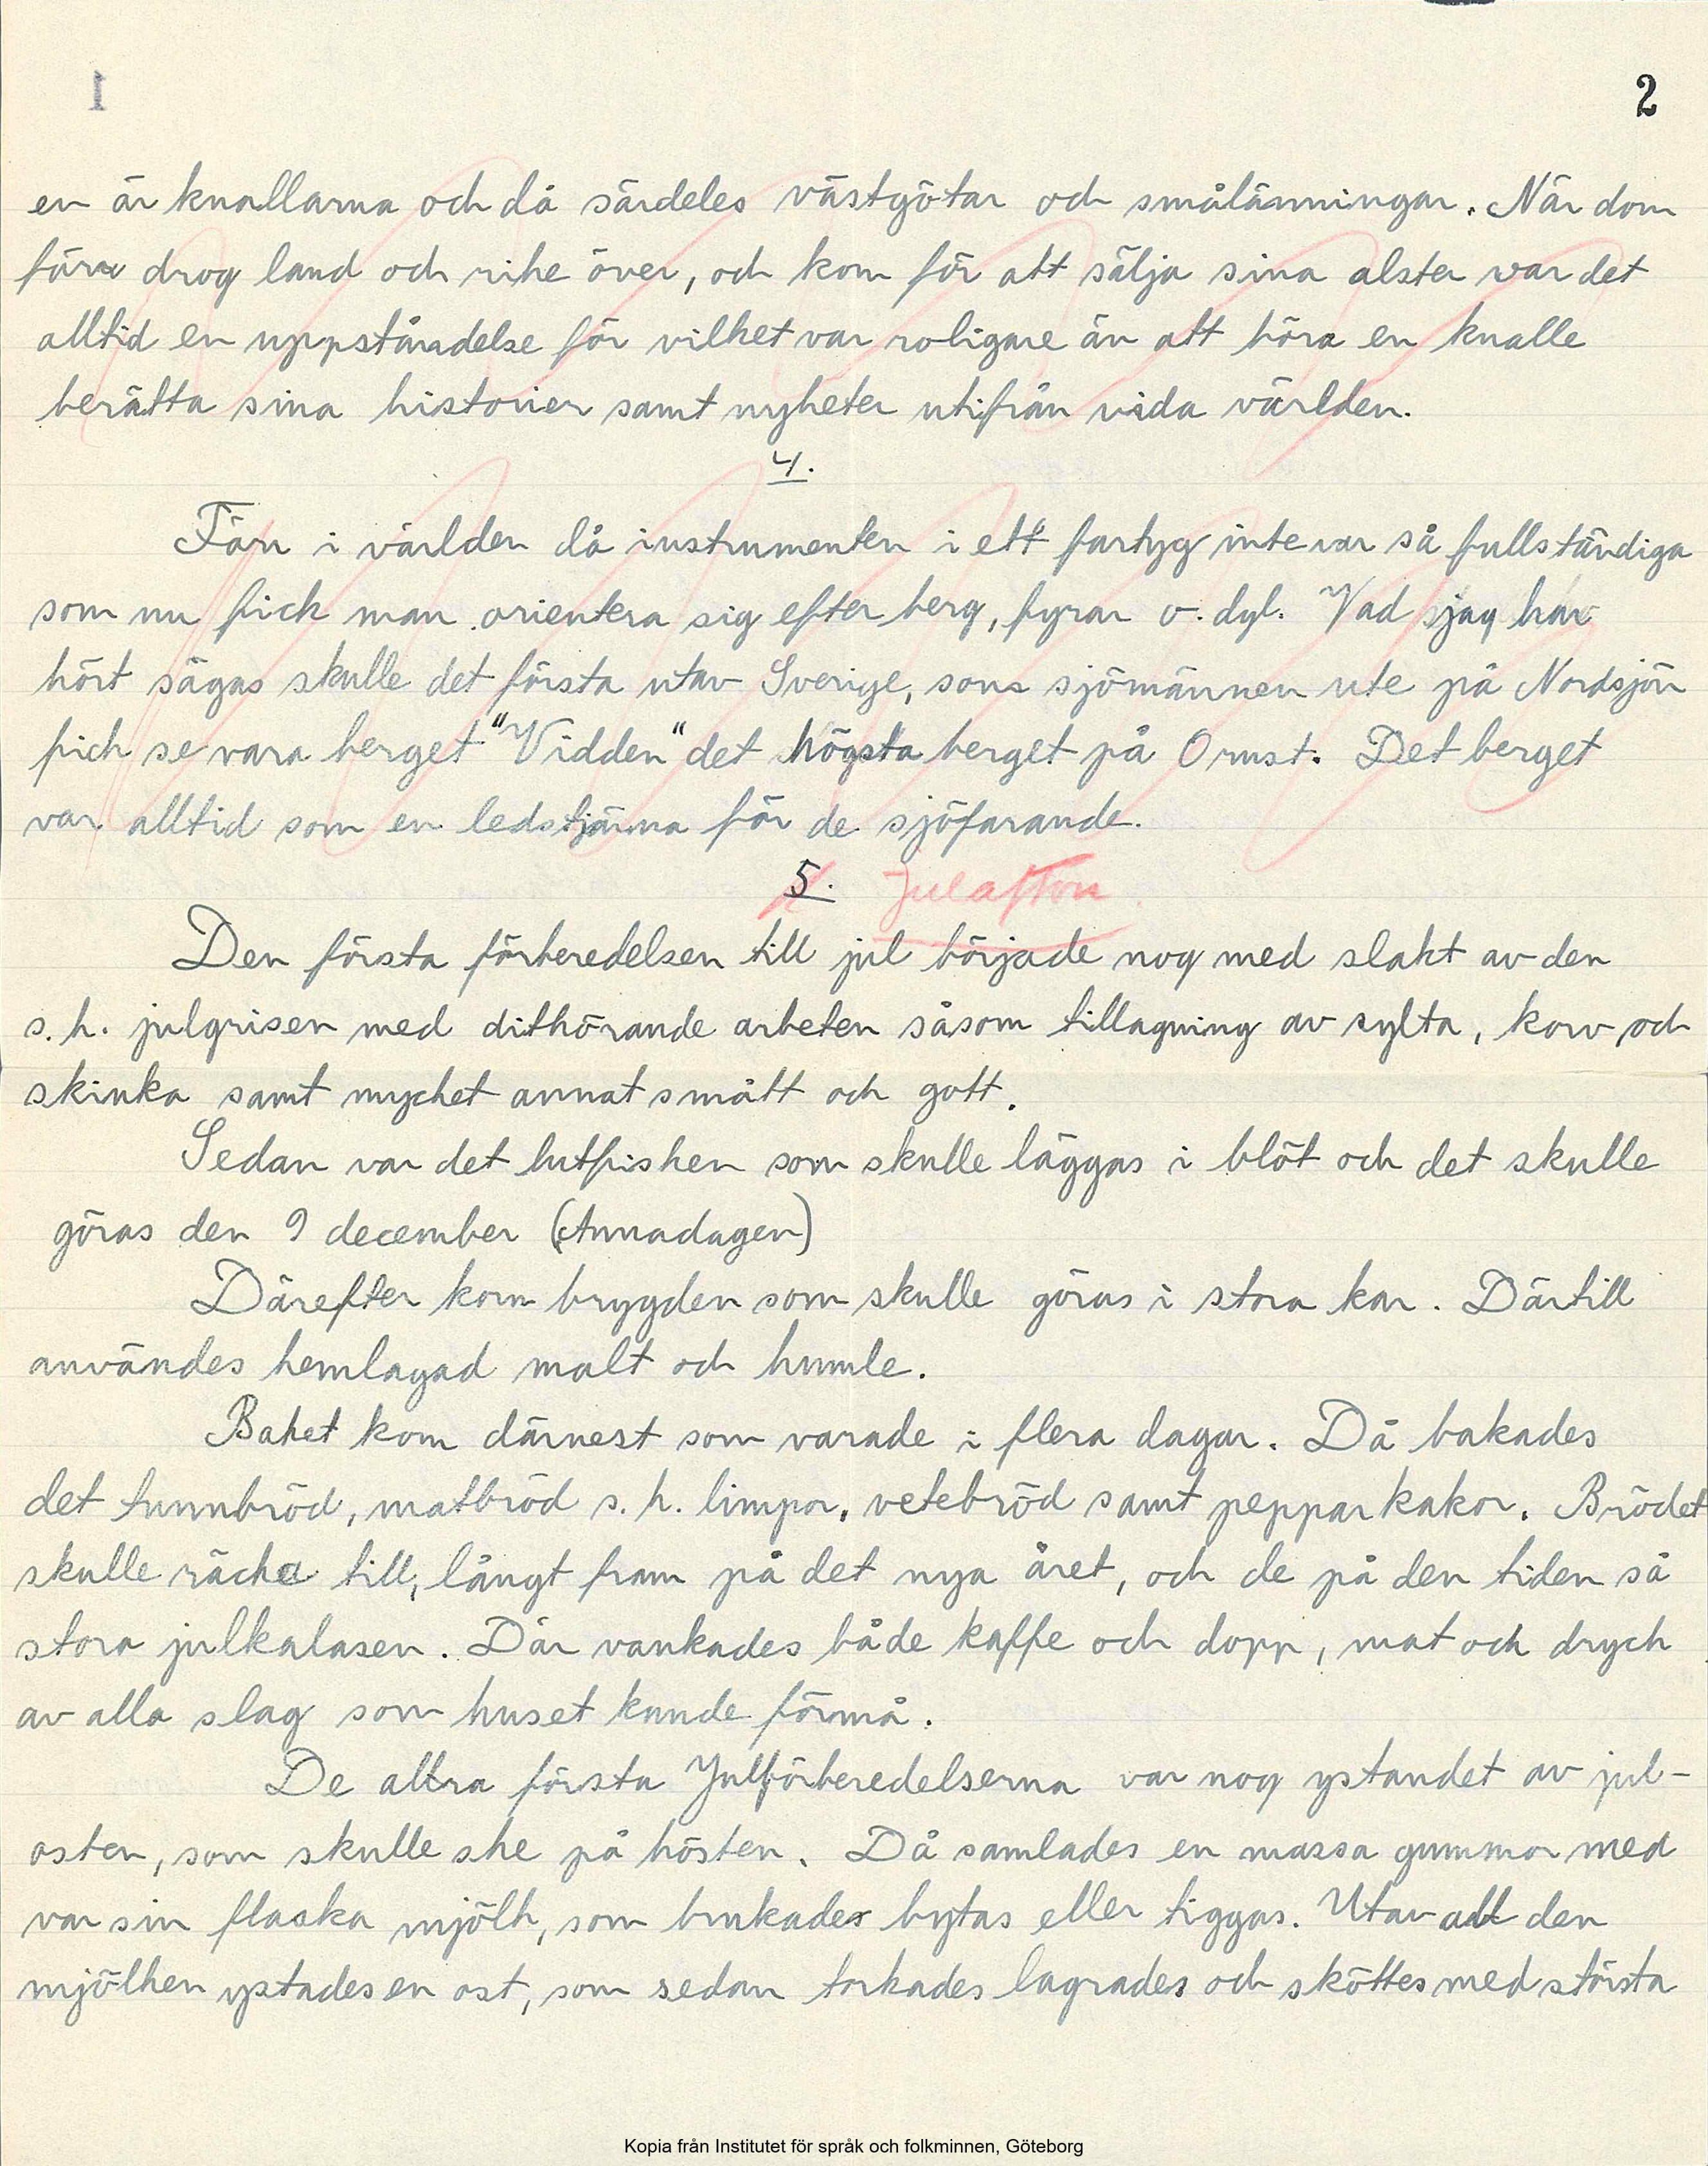 1
2
en är knallarna och då särdeles västgötar och smålänningar. När dom
förr drog land och rike över, och kom för att sälja sina alster var det
alltid en uppståndelse för vilket var roligare än att höra en knalle
berätta sina historier samt nyheter utifrån vida världen.
4.
Förr i världen då instrumenten i ett fartyg inte var så fullständiga
som nu fick man orientera sig efter berg, fyrar o. dyl. Vad jag har
hört sägas skulle det första utav Sverige, som sjömännen ute på Nordsjön
fick se vara berget "Vidden" det högsta berget på Orust. Det berget
var alltid som en ledstjärna för de sjöfarande.
5. Julafton
Den första förberedelsen till jul började nog med slakt av den
s.k. julgrisen med dithörande arbeten såsom tillagning av sylta, korv och
skinka samt mycket annat smått och gott.
Sedan var det lutfisken som skulle läggas i blöt och det skulle
göras den 9 december (Annadagen)
Därefter kom brygden som skulle göras i stora kar. Därtill
användes hemlagad malt och humle.
Baket kom därnest som varade i flera dagar. Då bakades
det tunnbröd, matbröd s.k. limpor, vetebröd samt pepparkakor. Brödet
skulle räcka till, långt fram på det nya året, och de på den tiden så
stora julkalasen. Där vankades både kaffe och dopp, mat och dryck
av alla slag som huset kunde förmå.
De allra första Julförberedelserna var nog ystandet av jul-
osten, som skulle ske på hösten. Då samlades en massa gummor med
var sin flaska mjölk, som brukades bytas eller tiggas. Utav all den
mjölken ystades en ost, som sedan torkades lagrades och sköttes med största
Kopia från Institutet för språk och folkminnen, Göteborg